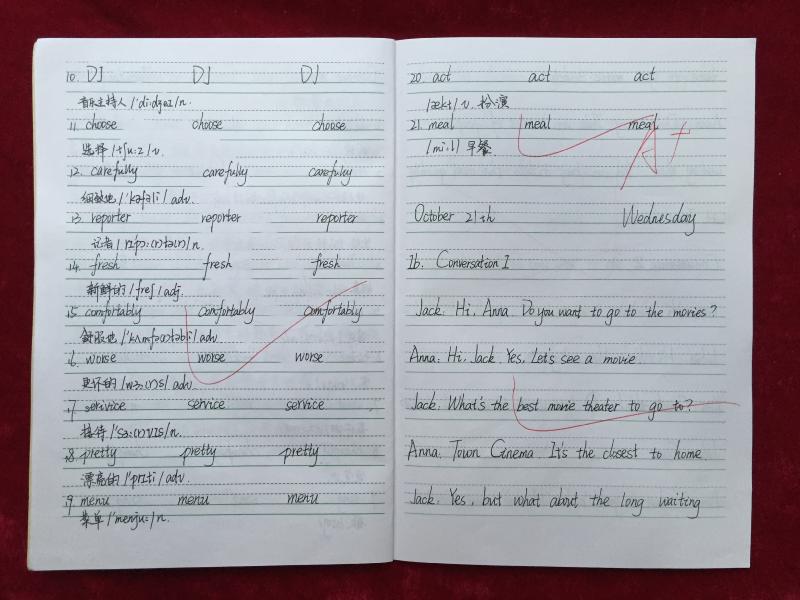 10. DJ DJ DJ
音乐主持人 /'di:dʒeɪ/ n.
11. choose choose choose
选择 /tʃu:z/ v.
12. carefully carefully carefully
细致地 /'keəfəli/ adv.
13. reporter reporter reporter
记者 /rɪ'pɔ:(r)tə(r)/ n.
14. fresh fresh fresh
新鲜的 /freʃ/ adj.
15. comfortably comfortably comfortably
舒服地 /'kʌmfə(r)təbli/ adv.
16. worse worse worse
更坏的 /wɜ:(r)s/ adv.
17. serivice service service
接待 /'sɜ:(r)vɪs/ n.
18. pretty pretty pretty
漂亮的 /'prɪti/ adv.
19. menu menu menu
菜单 /'menju:/ n.
20. act act act
/ækt/ v. 扮演
21. meal meal meal
/mi:l/ 早餐
A+
October 21th Wednesday
1b. Conversation 1
Jack: Hi, Anna. Do you want to go to the movies?
Anna: Hi, Jack. Yes, Let's see a movie.
Jack: What's the best movie theater to go to?
Anna: Town Cinema. It's the closest to home.
Jack: Yes, but what about the long waiting